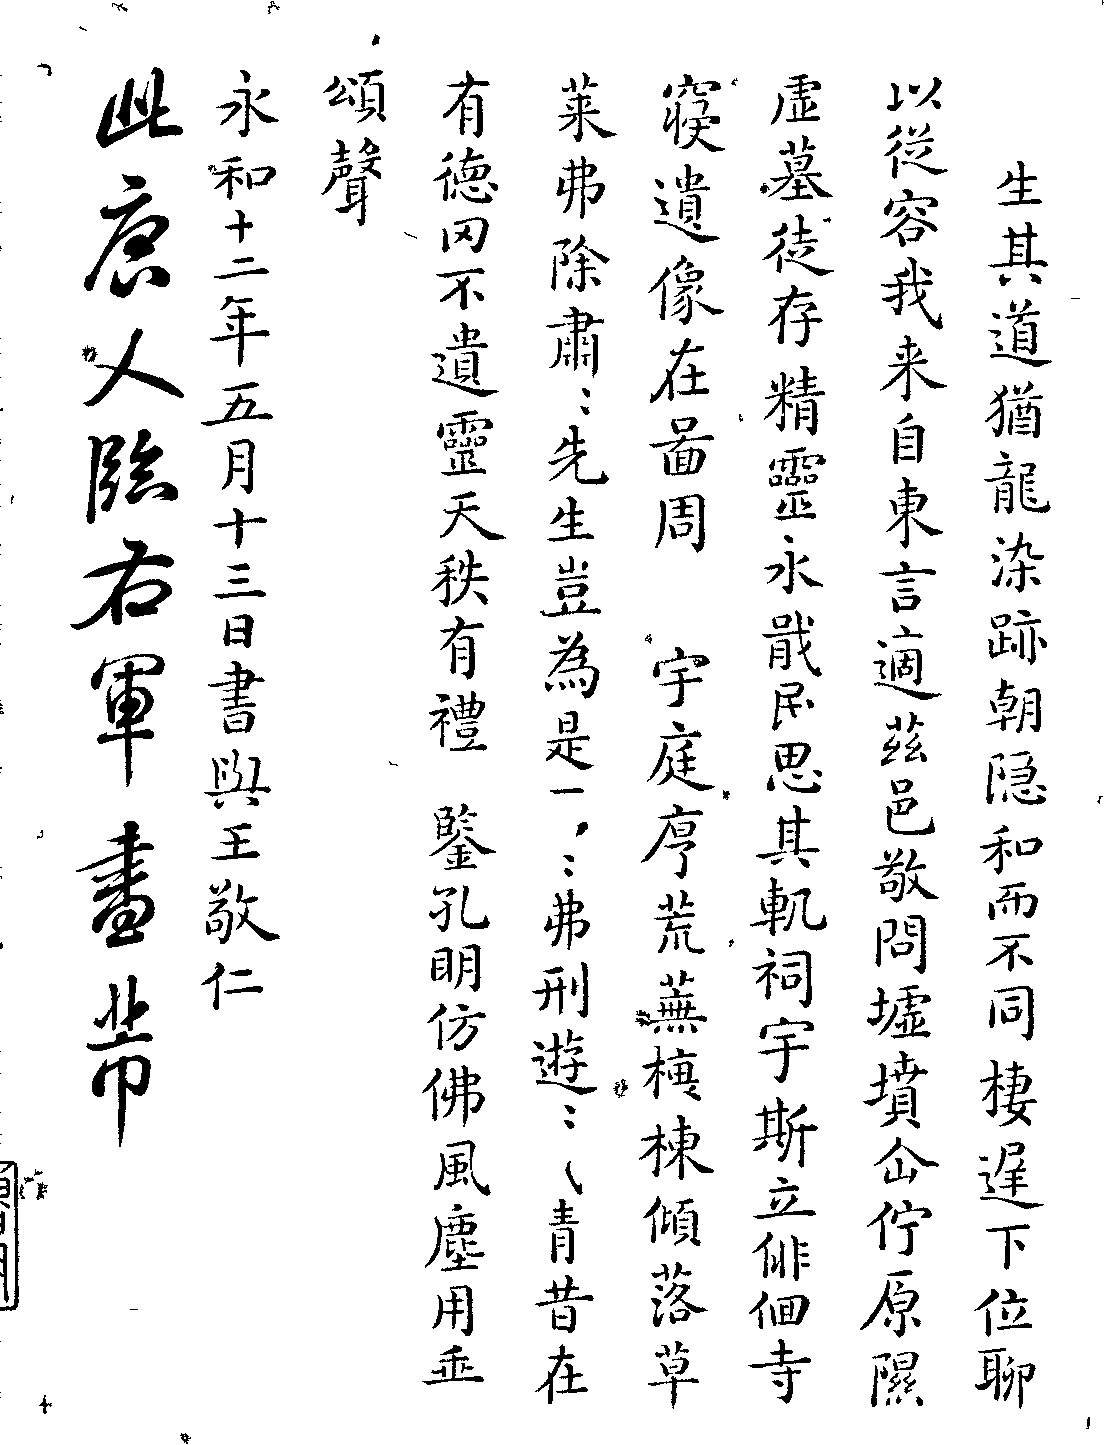 生其道猶龍染跡朝隐和而不同棲遲下位聊
以從容我来自東言適茲邑敬問墟墳企佇原隰
虛墓徒存精靈永戢民思其軌祠宇斯立俳佪寺
寝遺像在啚周 宇庭序荒蕪榱棟傾落草
萊弗除肅〻先生豈為是一〻弗刑遊〻青昔在
有徳罔不遺靈天秩有禮 鑒孔明仿佛風塵用垂
頌聲
永和十二年五月十三日書與王敬仁
此唐人臨右軍畫蒂